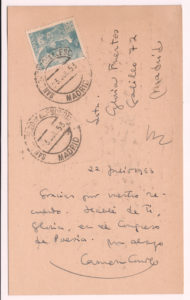 MADRID
Srta.
Gloria Fuertes
Galileo 72
Madrid
MADRID
22 Julio 1953
Gracias por vuestro re-
cuerdo. de Ti,
Gloria, en el Congreso
de Poesía. Un abrazo
Carmen Conde